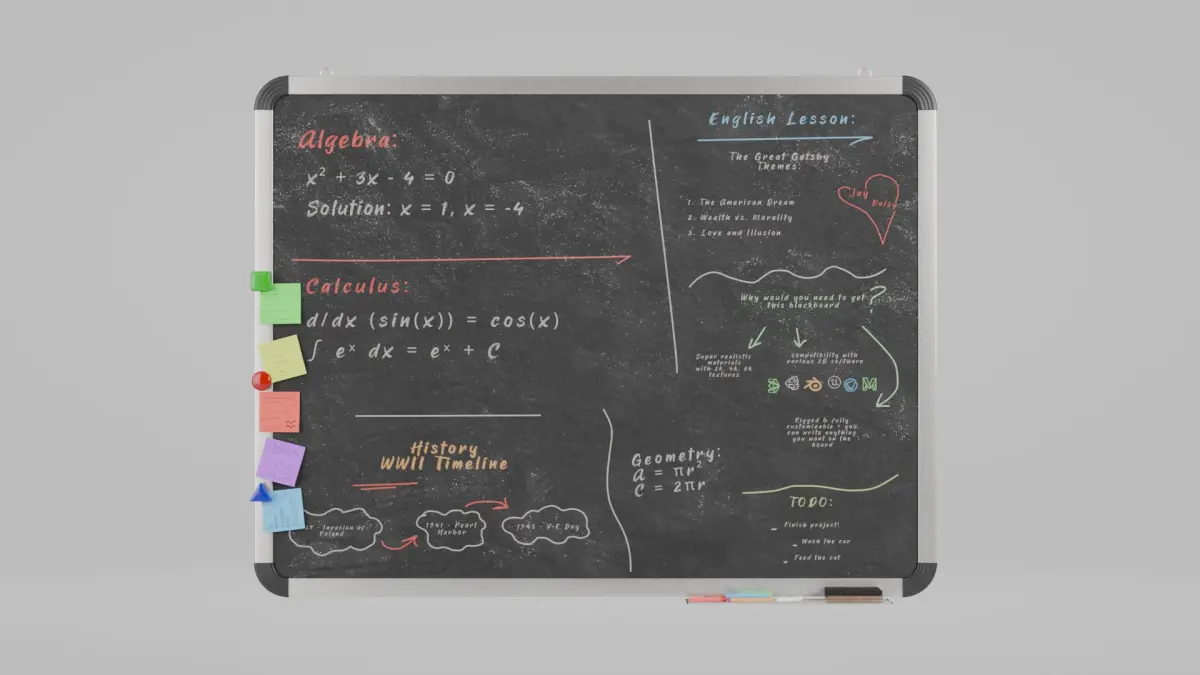 Algebra:
x² + 3x - 4 = 0
Solution: x = 1, x = -4
Calculus:
d/dx (sin(x)) = cos(x)
∫ eˣ dx = eˣ + C
History
WWII Timeline
- Invasion of
Poland
1941 - Pearl
Harbor
1945 - V-E Day
Geometry:
A = πr²
C = 2πr
English Lesson:
The Great Gatsby
Themes:
1. The American Dream
2. Wealth vs. Morality
3. Love and Illusion
Jay
Daisy
Why would you need to get
this blackboard
?
Super realistic
materials
with 2k, 4k, 8k
textures
compatibility with
various 3D software
Rigged & fully
customizable - you
can write anything
you want on the
board
TODO:
- Finish project!
- Wash the car
- Feed the cat